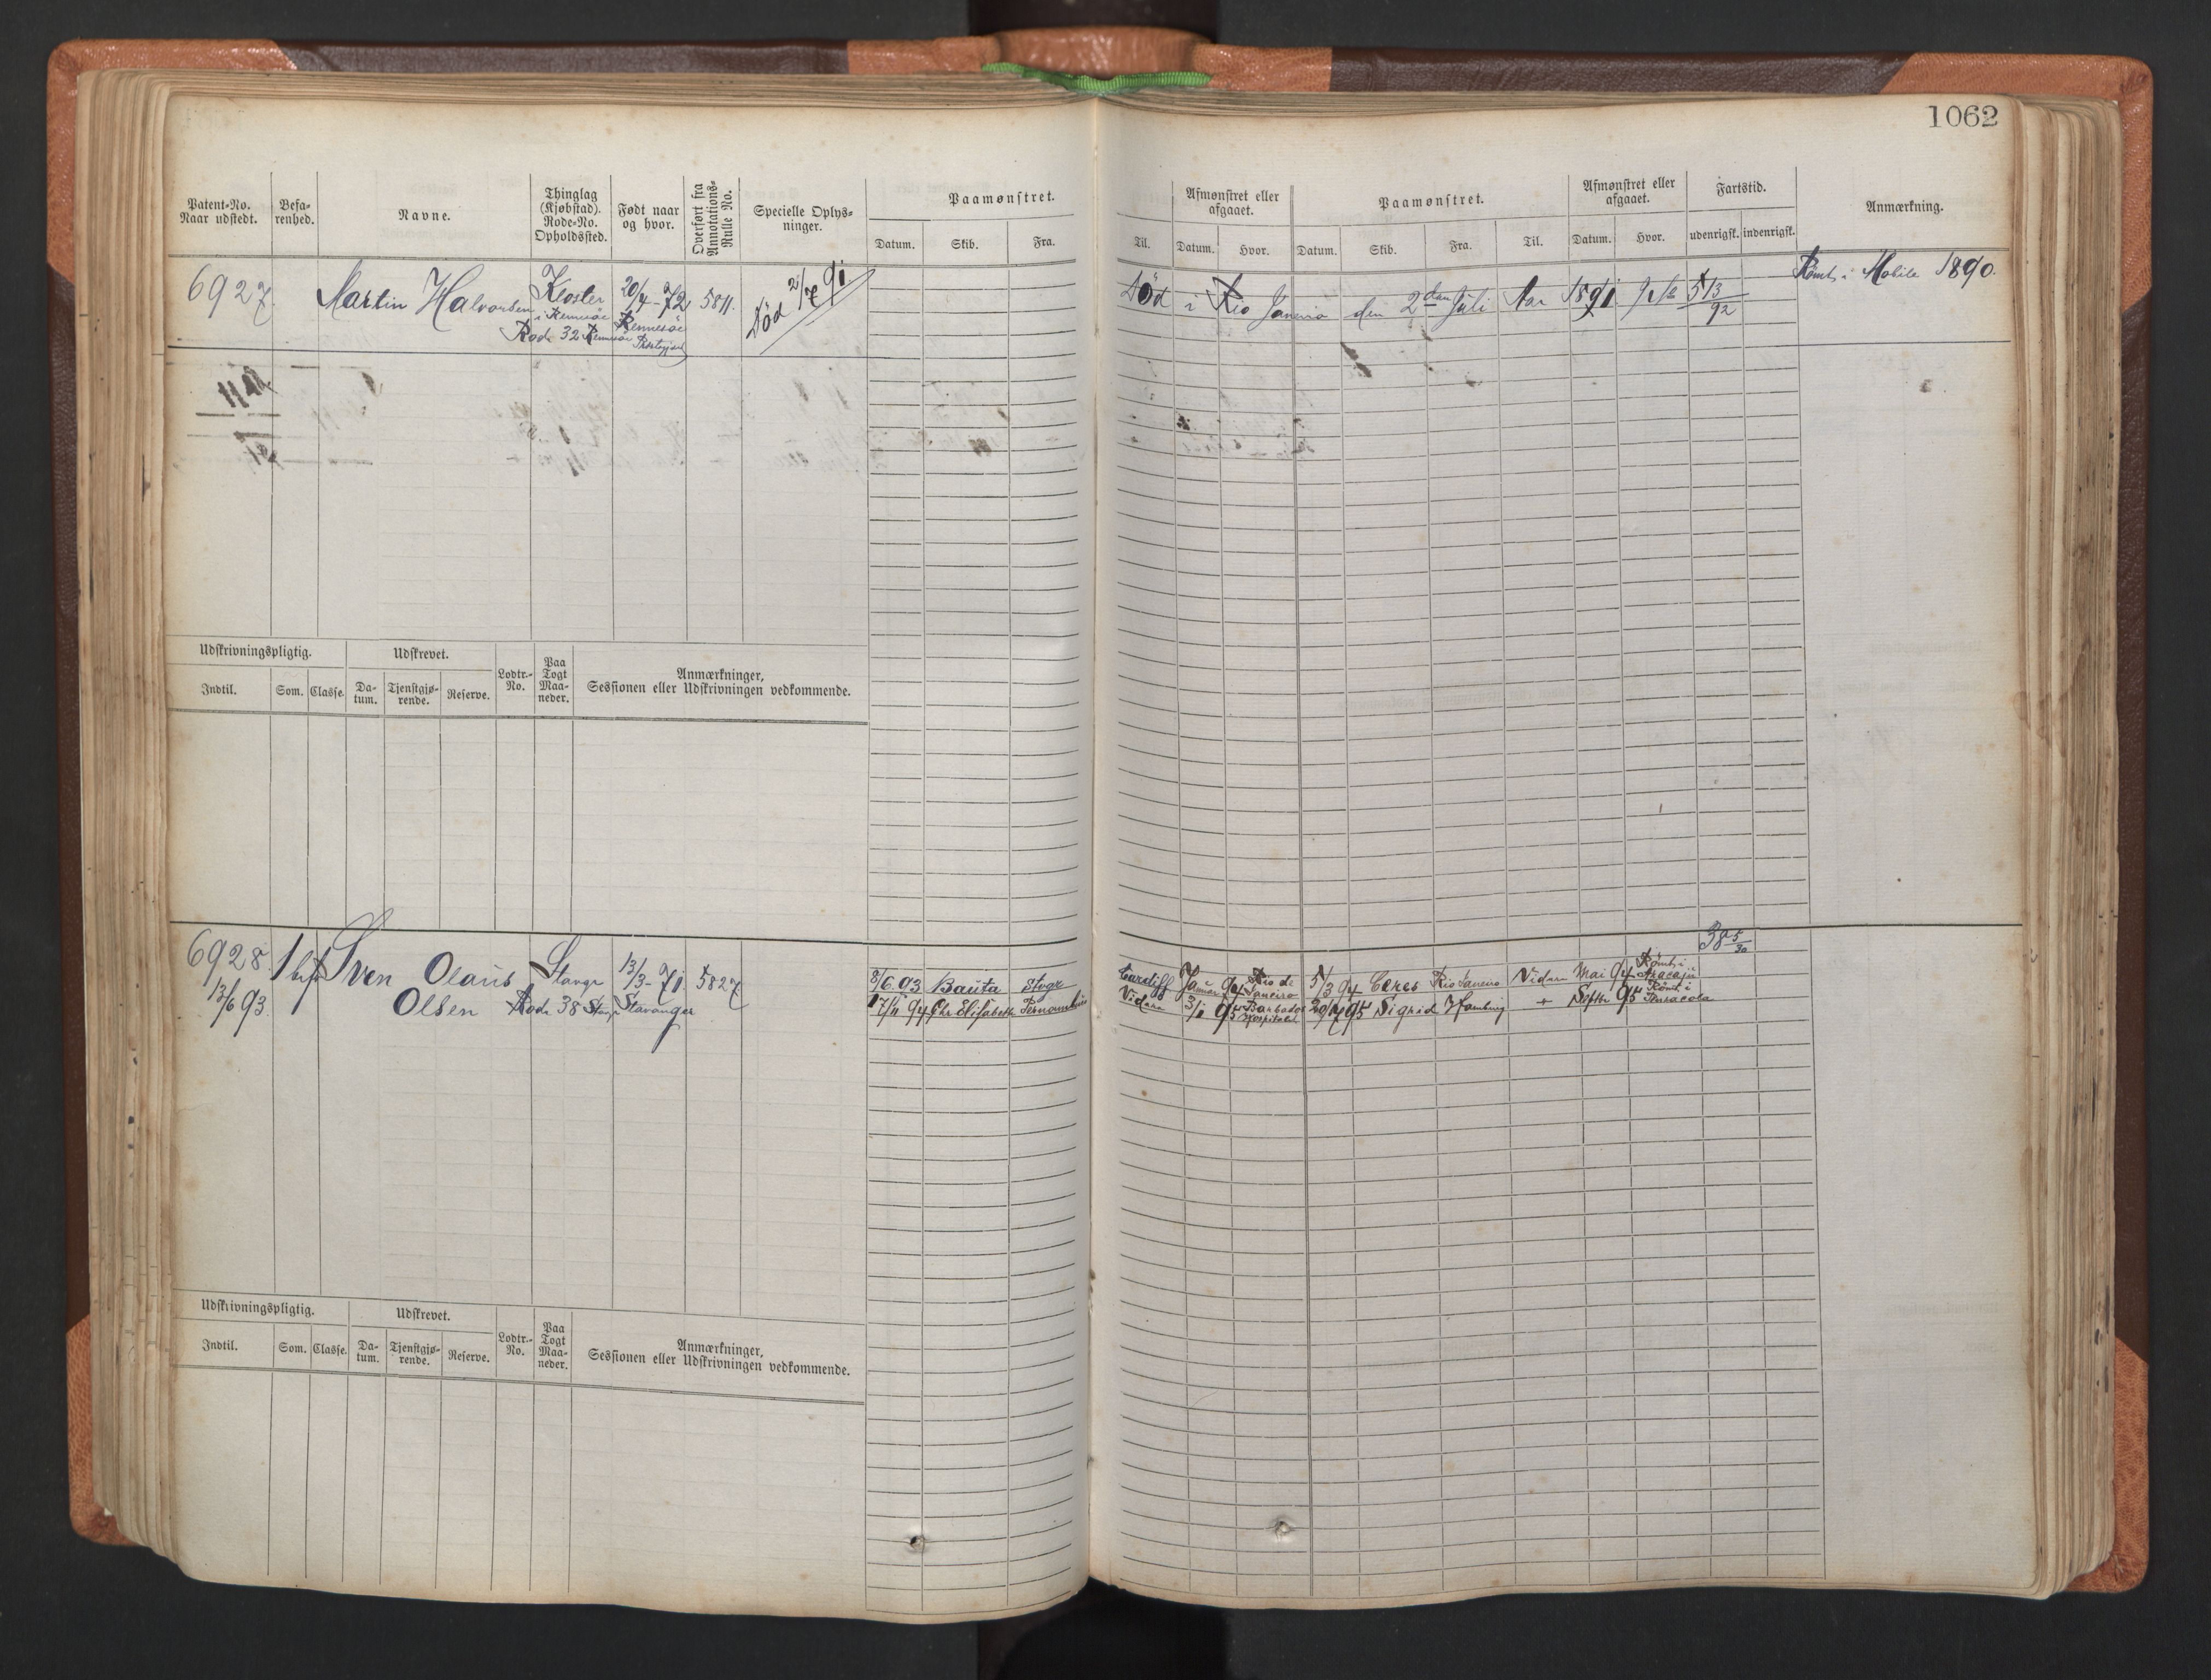 1062
Patent-No. Naar udstedt.
Befa-renhed.
Navne.
Thinglag (Kjøbstad). Rode-No. Opholdssted.
Født naar og hvor.
Overført fra Annotations-Rulle No.
Specielle Oplys-ninger.
Paamønstret.
Datum. Skib. Fra.
Til.
Afmønstret eller afgaaet.
Datum. Hvor.
Paamønstret.
Datum. Skib. Fra. Til.
Afmønstret eller afgaaet.
Datum. Hvor.
Fartstid.
udenrigsk. indenrigsk.
Anmærkning.
6927. Martin Halvorsen Kloster 20/4-72 5811. Død 2/7 91
i Rennesøe Rennesøe
Rode 32 Rennesøe Prestegjeld
Død i Rio Janeiro den 2den Juli Aar 1891 513/92
Rømt i Mobile 1890.
Udskrivningspligtig. Udskrevet. Lodtr.-No. Paa Togt Maa-neder. Anmærkninger, Sessionen eller Udskrivningen vedkommende.
Indtil. Som. Classe. Da-tum. Tjenstgjø-rende. Reserve.
6928 Sven Olaus Stavgr 13/3-71 5827
13/6 93. Olsen Rode 38 Stavgr Stavanger
38 5/30
8/6 93 Bauta Stvgr Cardiff Januar 94 Rio de Janeiro 5/3 94 Ceres Rio Janeiro Vidare Mai 94 Rømt i Aracaju
17/11 94 Chr Elisabeth Pernambuco Vidare 3/1 95 Barbados Hospitalet 20/4 95 Sigrid Hamburg + Septbr 95 Rømt i Pensacola
Udskrivningspligtig. Udskrevet. Lodtr.-No. Paa Togt Maa-neder. Anmærkninger, Sessionen eller Udskrivningen vedkommende.
Indtil. Som. Classe. Da-tum. Tjenstgjø-rende. Reserve.